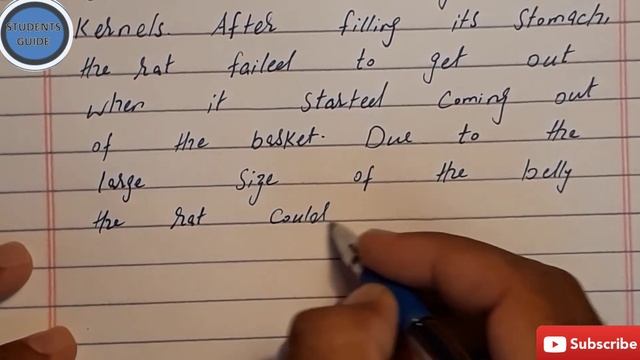 STUDENTS
GUIDE
Kernels. After filling its stomach,
the rat failed to get out
when it started coming out
of the basket. Due to the
large size of the belly
the rat could
Subscribe